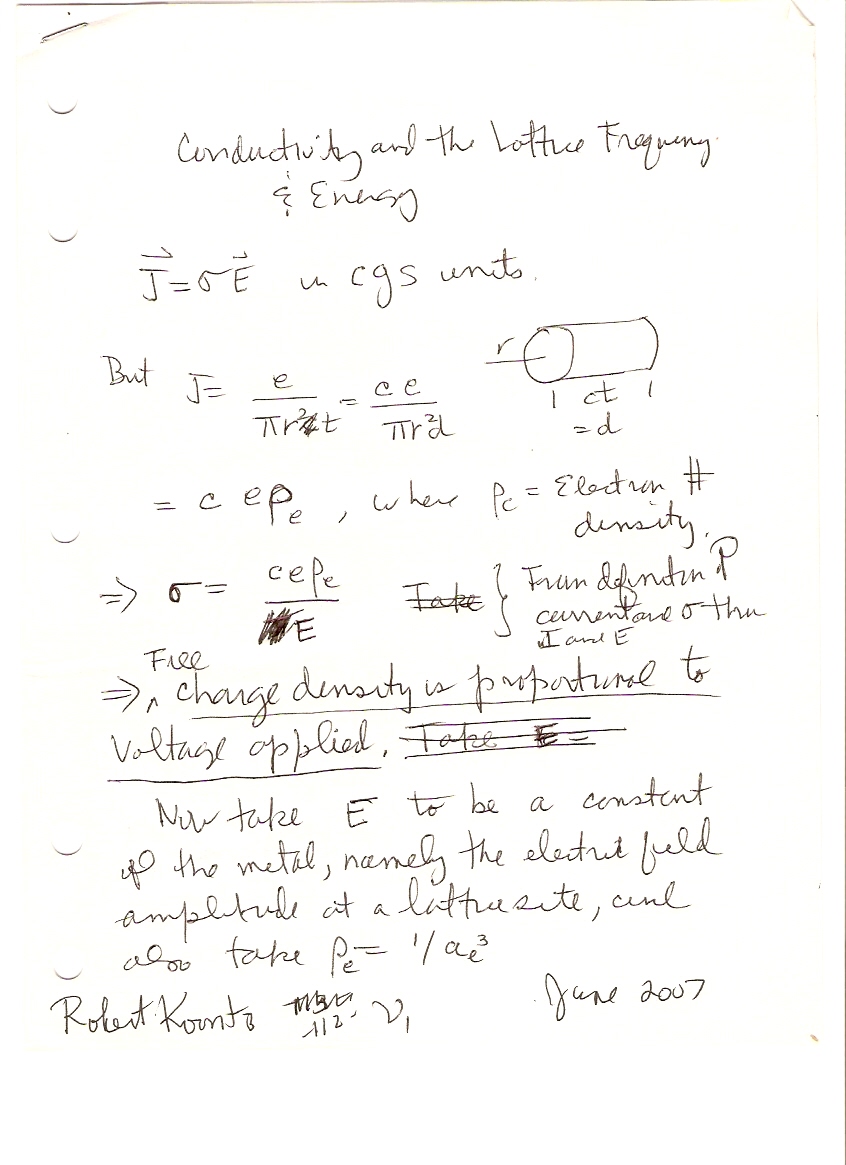 Conductivity and the Lattice Frequency
& Energy
J = σE in cgs units.
But J = e/πr²t = ce/πr²d
r
ct
= d
= c eρe, where ρe = Electron #
density.
⇒ σ = ceρe/E Take } From definition of
current and σ thru
I and E
⇒ Free charge density is proportional to
voltage applied. Take E =
Now take E to be a constant
of the metal, namely the electric field
amplitude at a lattice site, and
also take ρe = 1/ae³
Robert Koontz V1 June 2007